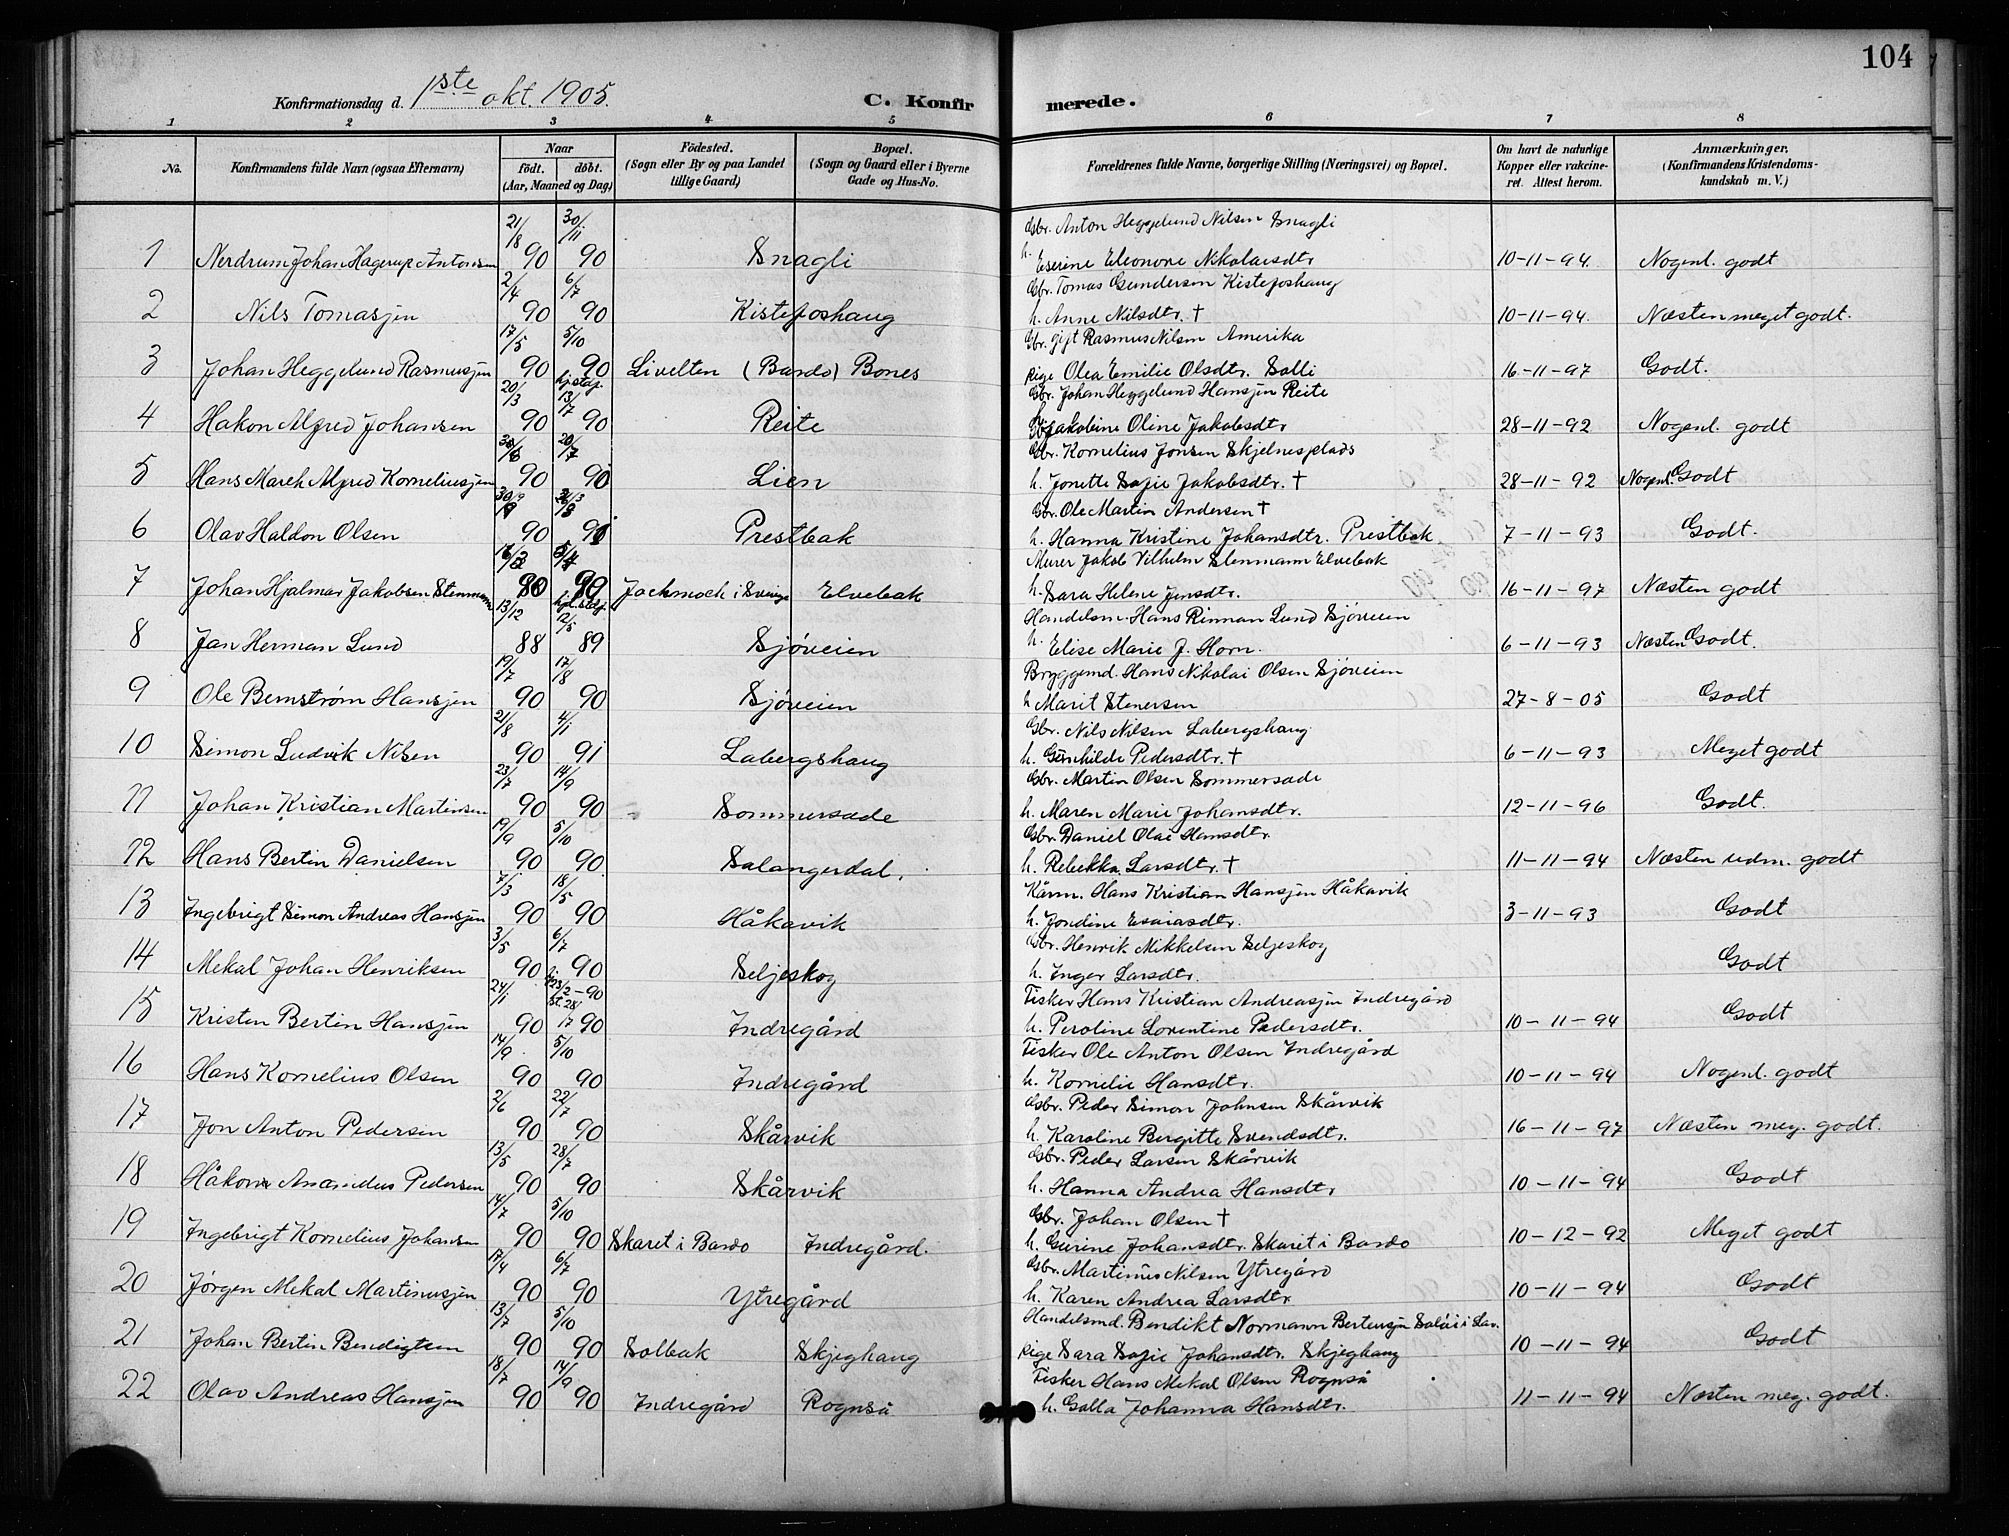 104
Konfirmationsdag d. 1ste okt. 1905. C. Konfirmerede.
1 2 3 4 5 6 7 8
No. Konfirmandens fulde Navn (ogsaa Efternavn) Naar født. døbt. (Aar, Maaned og Dag) Fødested. (Sogn eller By og paa Landet tillige Gaard) Bopæl. (Sogn og Gaard eller i Byerne Gade og Hus-No. Forældrenes fulde Navne, borgerlige Stilling (Næringsvei) og Bopæl. Om havt de naturlige Kopper eller vakcineret. Attest herom. Anmærkninger. (Konfirmandens Kristendomskundskab m. V.)
21/8 30/11 Gbr. Anton Heggelund Nilsen Snagli
1 Nerdrum Johan Hagerup Antonsen 90 90 Snagli h. Eserine Eleonore Nikolaisdtr 10-11-94. Nogenl. godt
2/4 6/7 Gbr. Tomas Gundersen Kistefoshaug
2 Nils Tomasjen 90 90 Kistefoshaug h. Anne Nilsdtr. † 10-11-94. Næsten meget godt.
17/5 5/10 Gbr. gift Rasmus Nilsen Amerika
3 Johan Heggelund Rasmusjen 90 90 Livelten (Bardo) Bones Pige Olea Emilie Olsdtr. Solli 16-11-97 Godt.
20/3 hj.stdf. 13/7 Gbr. Johan Heggelund Hansjen Reite
4 Hakon Alfred Johansen 90 90 Reite Jakobine Oline Jakobsdtr 28-11-92 Nogenl. godt
30/6 20/7 Gbr. Kornelius Jonsen Skjelnesplads
5 Hans Mareh Alfred Korneliusjen 90 90 Lien h. Jonette Sofie Jakobsdtr. † 28-11-92 Nogenl. Godt
Gbr. Ole Martin Andersen †
6 Olav Haldon Olsen 90 91 Prestbak h. Hanna Kristine Johansdtr. Prestbak 7-11-93 Godt.
Murer Jakob Vilhelm Stenmann Elvebak
7 Johan Hjalmar Jakobsen Stenmann 90 90 Jockmock i Sverige Elvebak h. Sara Helene Jensdtr. 16-11-97 Næsten godt
13/12 hj.stdf. 2/5 Handelsm. Hans Rinman Lund Sjøveien
8 Jan Herman Lund 88 89 Sjøveien h. Elise Marie J. Horn. 6-11-93 Næsten Godt.
19/7 17/8 Bryggemd. Hans Nikolai Olsen Sjøveien
9 Ole Bernstrøm Hansjen 90 90 Sjøveien h Marit Stenersen 27-8-05 Godt
21/8 4/1 Gbr. Nils Nilsen Labergshaug
10 Simon Ludvik Nilsen 90 91 Labergshaug h. Gunhilde Pedersdtr. † 6-11-93 Meget godt
23/7 14/9 Gbr. Martin Olsen Sommersæde
11 Johan Kristian Martinsen 90 90 Sommersæde h. Maren Marie Johansdtr. 12-11-96 Godt.
19/9 5/10 Gbr. Daniel Olai Hansdtr.
12 Hans Bertin Danielsen 90 90 Salangerdal. h. Rebekka Larsdtr. † 11-11-94 Næsten udm. godt
7/3 18/5 Kårm. Hans Kristian Hansjen Håkavik
13 Ingebrigt Simon Andreas Hansjen 90 90 Håkavik h. Jondine Esaiasdtr. 3-11-93 Godt
3/5 6/7 Gbr. Henrik Mikkelsen Seljeskog
14 Mekal Johan Henriksen 90 90 Seljeskog h. Inger Larsdtr. Godt
24/1 23/2-90 Fisker Hans Kristian Andreasjen Indregård
15 Kristen Bertin Hansjen 90 90 Indregård h. Peroline Lorentine Pedersdtr. 10-11-94 Godt
14/9 5/10 Fisker Ole Anton Olsen Indregård
16 Hans Kornelius Olsen 90 90 Indregård h. Kornelie Hansdtr. 10-11-94 Nogenl. godt
2/6 22/7 Gbr. Peder Simon Johnsen Skårvik
17 Jon Anton Pedersen 90 90 Skårvik h. Karoline Bergitte Svendsdtr. 16-11-97 Næsten meg. godt.
13/5 28/7 Gbr. Peder Larsen Skårvik
18 Håkon Amandus Pedersen 90 90 Skårvik h. Hanna Andrea Hansdtr 10-11-94 Godt
14/7 5/10 Gbr. Johan Olsen †
19 Ingebrigt Kornelius Johansen 90 90 Skaret i Bardo Indregård. h. Gurine Johansdtr. Skaret i Bardo 10-12-92 Meget godt
17/4 6/7 Gbr. Martinus Nilsen Ytregård
20 Jørgen Mekal Martinusjen 90 90 Ytregård h. Karen Andrea Larsdtr 10-11-94 Godt
13/7 5/10 Handelsmd. Bendikt Normann Bertensjen i Lav.
21 Johan Bertin Bendigtsen 90 90 Solbak Skjeghaug Pige Sara Sofie Johansdtr. Skjeghaug 10-11-94 Godt
18/7 14/9 Fisker Hans Mekal Olsen Rognså
22 Olav Andreas Hansjen 90 90 Indregård Rognså h. Golla Johanna Hansdtr. 11-11-94 Næsten meg. godt.